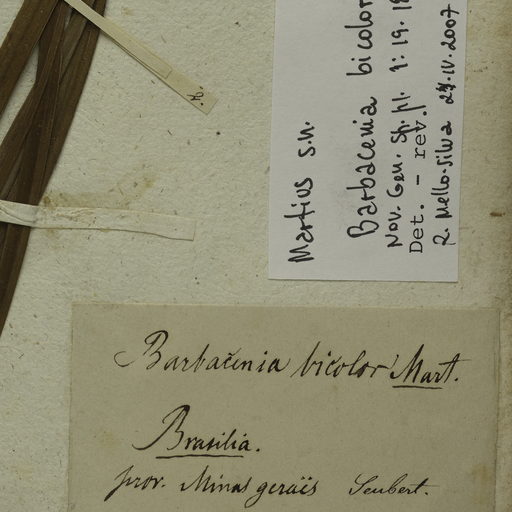 Martius s.n.
Barbacenia bicolor
Nov. Gen. Sp. pl. 1: 19. 18
Det. - rev.
R. Mello-Silva 24.IV.2007
Barbacenia bicolor Mart.
Brasilia.
prov. Minas geraïs Seubert.